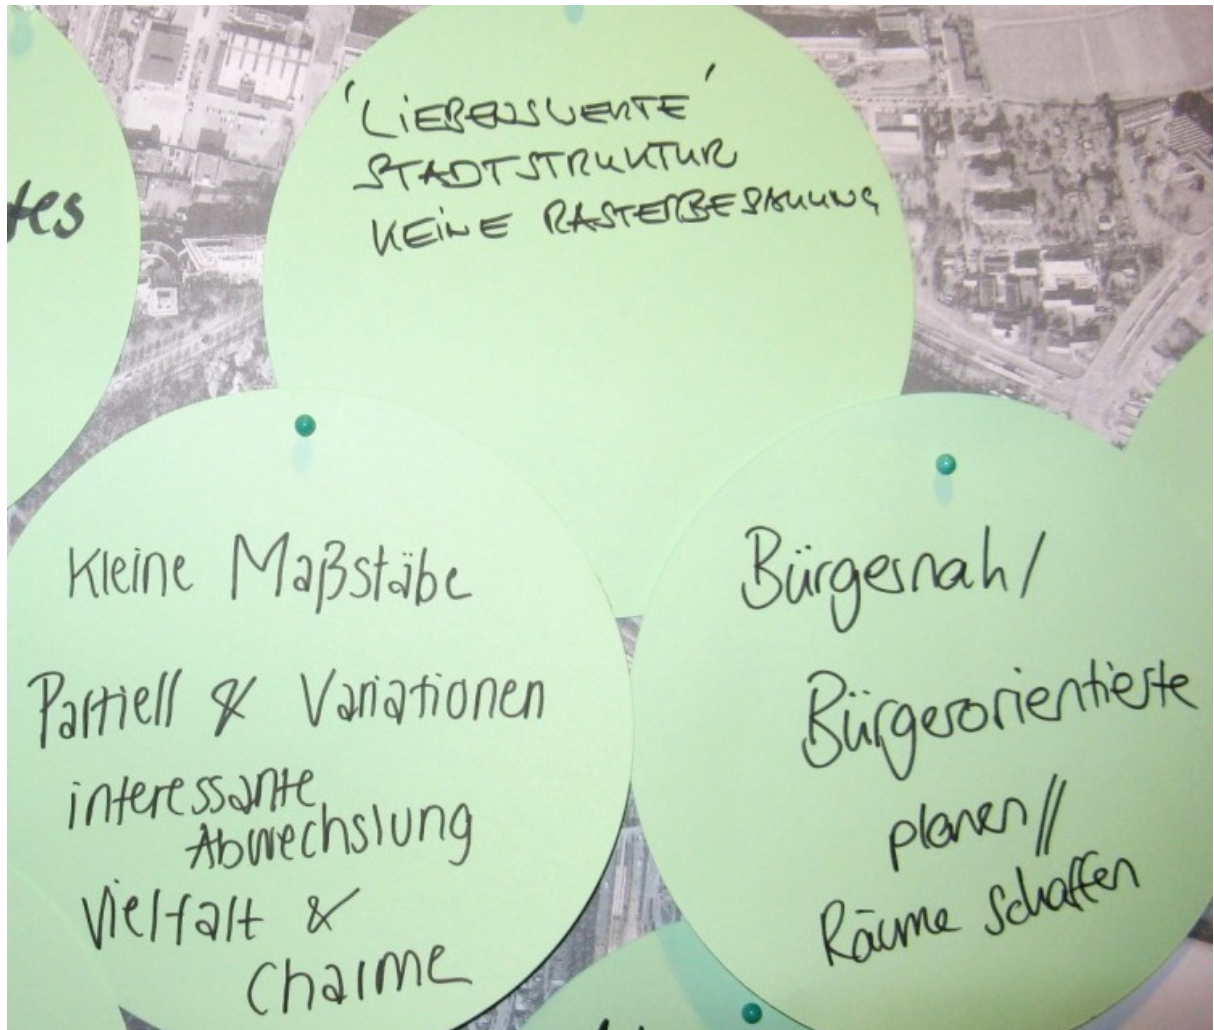 'LIEBENSWERTE'
STADTSTRUKTUR
KEINE RASTERBEBAUUNG
tes
Kleine Maßstäbe
Partiell & Variationen
interessante
Abwechslung
Vielfalt &
Charme
Bürgernah/
Bürgerorientierte
planen//
Räume schaffen